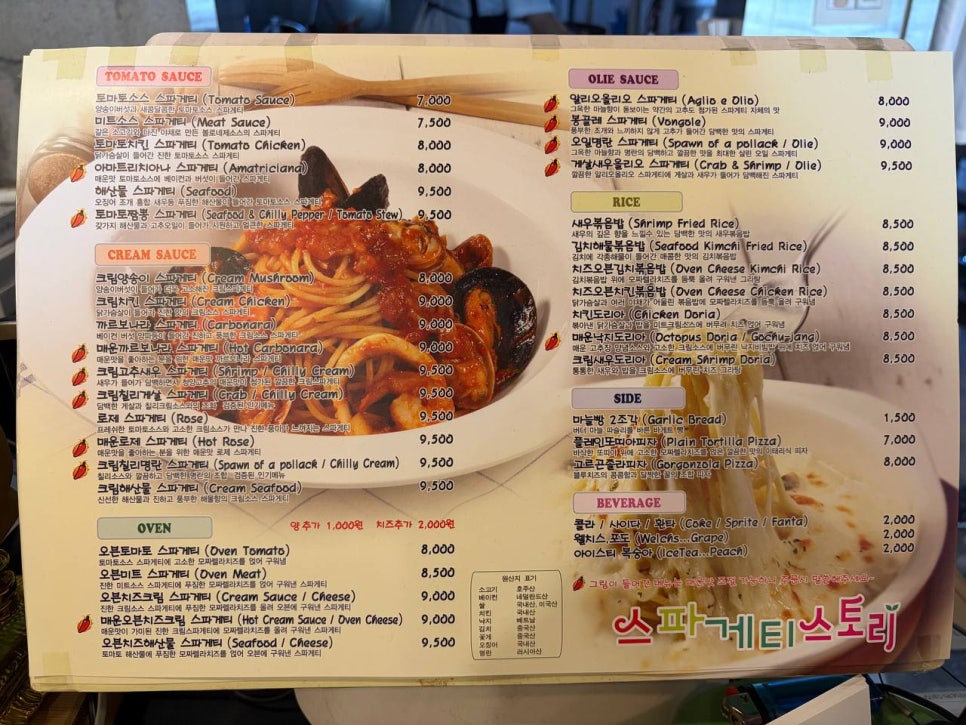 TOMATO SAUCE
토마토소스 스파게티 (Tomato Sauce) 7,000
양송이버섯과 새콤달콤한 토마토소스 스파게티
미트소스 스파게티 (Meat Sauce) 7,500
갈은 소고기와 다진 야채로 만든 볼로네제소스의 스파게티
토마토치킨 스파게티 (Tomato Chicken) 8,000
닭가슴살이 들어간 진한 토마토소스 스파게티
아마트리치아나 스파게티 (Amatriciana) 8,000
매운맛 토마토소스에 베이컨과 버섯이 들어간 스파게티
해산물 스파게티 (Seafood) 9,500
오징어 조개 홍합 새우등 푸짐한 해산물이 들어간 토마토소스 스파게티
토마토짬뽕 스파게티 (Seafood & Chilly Pepper / Tomato Stew) 9,500
갖가지 해산물과 고추오일이 들어가 시원하고 얼큰한 스파게티
CREAM SAUCE
크림양송이 스파게티 (Cream Mushroom) 8,000
양송이버섯이 들어가 더욱 고소해진 크림스파게티
크림치킨 스파게티 (Cream Chicken) 9,000
닭가슴살이 들어가 진한 맛의 크림소스 스파게티
까르보나라 스파게티 (Carbonara) 9,000
베이컨 버섯 양파등이 들어간 진하고 풍부한 크림소스 스파게티
매운까르보나라 스파게티 (Hot Carbonara) 9,000
매운맛을 좋아하는 분을 위한 매운맛 까르보나라 스파게티
크림고추새우 스파게티 (Shrimp / Chilly Cream) 9,500
새우가 들어가 담백하면서 청양고추의 매운맛이 첨가된 알싸한 크림스파게티
크림칠리게살 스파게티 (Crab / Chilly Cream) 9,500
담백한 게살과 칠리크림소스와의 조합 검증된 인기메뉴
로제 스파게티 (Rose) 9,500
프레쉬한 토마토소스와 고소한 크림소스가 만나 진한 풍미가 느껴지는 스파게티
매운로제 스파게티 (Hot Rose) 9,500
매운맛을 좋아하는 분을 위한 매운맛 로제 스파게티
크림칠리명란 스파게티 (Spawn of a pollack / Chilly Cream) 9,500
칠리소스와 깔끔하고 담백한 명란의 조합 검증된 인기메뉴
크림해산물 스파게티 (Cream Seafood) 9,500
신선한 해산물과 진하고 풍부한 해물향의 크림소스 스파게티
OVEN
양추가 1,000원 치즈추가 2,000원
오븐토마토 스파게티 (Oven Tomato) 8,000
토마토소스 스파게티에 고소한 모짜렐라치즈를 얹어 구워냄
오븐미트 스파게티 (Oven Meat) 8,500
진한 미트소스 스파게티에 푸짐한 모짜렐라치즈를 얹어 구워낸 스파게티
오븐치즈크림 스파게티 (Cream Sauce / Cheese) 9,000
진한 크림소스 스파게티에 푸짐한 모짜렐라치즈를 올려 오븐에 구워낸 스파게티
매운오븐치즈크림 스파게티 (Hot Cream Sauce / Oven Cheese) 9,000
매운맛이 가미된 진한 크림스파게티에 모짜렐라치즈를 올려 오븐에 구워낸 스파게티
오븐치즈해산물 스파게티 (Seafood / Cheese) 9,500
토마토 해산물에 푸짐한 모짜렐라치즈를 얹어 오븐에 구워낸 스파게티
원산지 표기
소고기 호주산
베이컨 네덜란드산
쌀 국내산, 미국산
치킨 국내산
낙지 베트남
김치 중국산
꽃게 중국산
오징어 국내산
명란 러시아산
OLIE SAUCE
알리오올리오 스파게티 (Aglio e Olio) 8,000
그윽한 마늘향이 돋보이는 약간의 고추도 첨가된 스파게티 자체의 맛
봉골레 스파게티 (Vongole) 9,000
풍부한 조개와 느끼하지 않게 고추가 들어간 담백한 맛의 스파게티
오일명란 스파게티 (Spawn of a pollack / Olie) 9,000
그윽한 마늘향과 명란의 담백하고 깔끔한 맛을 최대한 살린 오일 스파게티
게살새우올리오 스파게티 (Crab & Shrimp / Olie) 9,500
깔끔한 알리오올리오 스파게티에 게살과 새우가 들어가 담백해진 스파게티
RICE
새우볶음밥 (Shrimp Fried Rice) 8,500
새우의 깊은 향을 느낄수 있는 담백한 맛의 새우볶음밥
김치해물볶음밥 (Seafood Kimchi Fried Rice) 8,500
김치에 각종해물이 들어간 매콤한 맛의 김치볶음밥
치즈오븐김치볶음밥 (Oven Cheese Kimchi Rice) 8,500
김치볶음밥 위에 모짜렐라치즈를 듬뿍 올려 구워낸 그라탕
치즈오븐치킨볶음밥 (Oven Cheese Chicken Rice) 8,500
닭가슴살과 여러 야채가 어울린 볶음밥에 모짜렐라치즈를 듬뿍 올려 구워냄
치킨도리아 (Chicken Doria) 8,500
볶아낸 닭가슴살과 밥을 미트크림소스에 버무려 치즈 얹어 구워냄
매운낙지도리아 (Octopus Doria / Gochu-jang) 8,500
크림새우도리아 (Cream Shrimp Doria) 8,500
통통한 새우와 밥을 크림소스에 버무린 치즈 그라탕
SIDE
마늘빵 2조각 (Garlic Bread) 1,500
버터 마늘 파슬리를 바른 바게트 빵
플레인또띠아피자 (Plain Tortilla Pizza) 7,000
바삭한 또띠아 위에 고소한 모짜렐라치즈를 얹은 깔끔한 맛의 이태리식 피자
고르곤졸라피자 (Gorgonzola Pizza) 8,000
블루치즈의 콤콤함과 달짝한 꿀의 조합 피자
BEVERAGE
콜라 / 사이다 / 환타 (Coke / Sprite / Fanta) 2,000
웰치스.포도 (Welchs...Grape) 2,000
아이스티 복숭아 (IceTea...Peach) 2,000
그림이 들어간 메뉴는 매운맛 조절 가능하니 주문시 말씀해주세요~
스파게티스토리